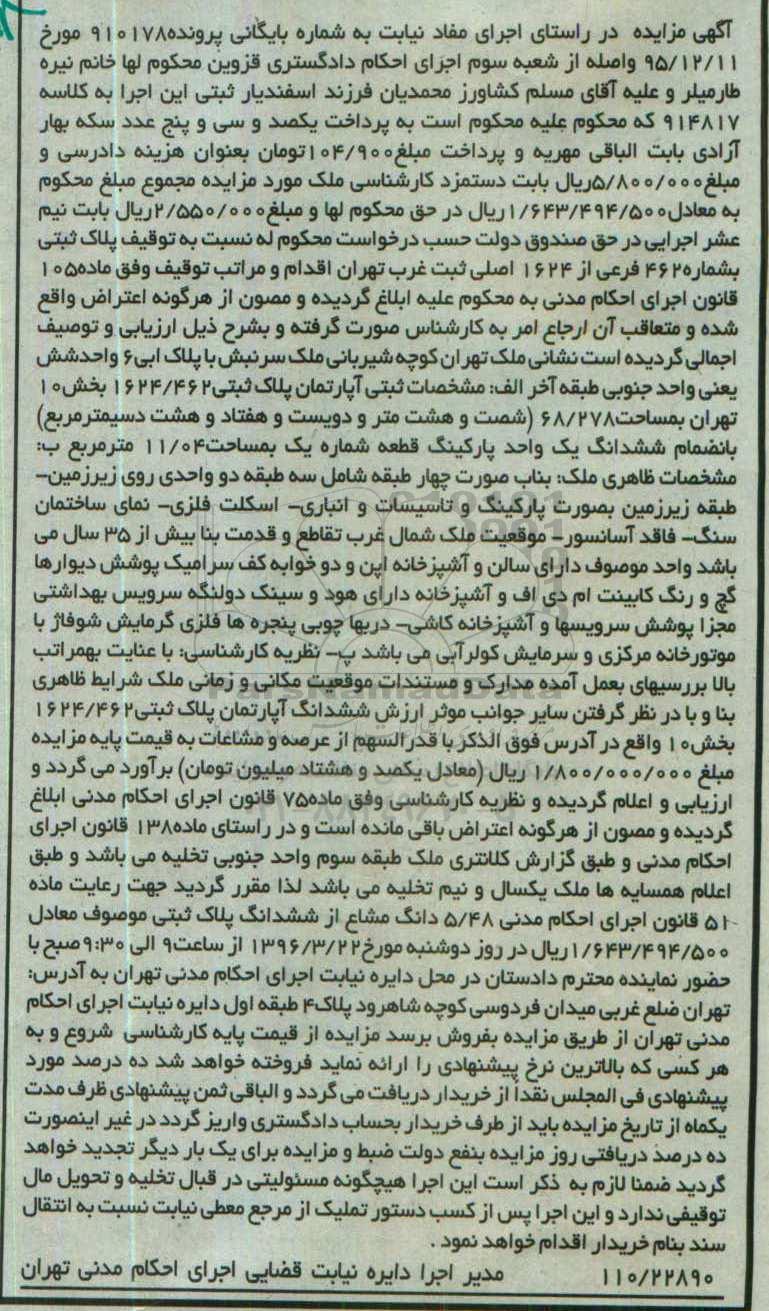 آگهی مزایده در راستای اجرای مفاد نیابت به شماره بایگانی پرونده۹۱۰۱۷۸ مورخ
۹۵/۱۲/۱۱ واصله از شعبه سوم اجرای احکام دادگستری قزوین محکوم لها خانم نیره
طارمیلر و علیه آقای مسلم کشاورز محمدیان فرزند اسفندیار ثبتی این اجرا به کلاسه
۹۱۴۸۱۷ که محکوم علیه محکوم است به پرداخت یکصد و سی و پنج عدد سکه بهار
آزادی بابت الباقی مهریه و پرداخت مبلغ۱۰۴/۹۰۰تومان بعنوان هزینه دادرسی و
مبلغ۵/۸۰۰/۰۰۰ریال بابت دستمزد کارشناسی ملک مورد مزایده مجموع مبلغ محکوم
به معادل۱/۶۴۳/۴۹۴/۵۰۰ریال در حق محکوم لها و مبلغ۲/۵۵۰/۰۰۰ریال بابت نیم
عشر اجرایی در حق صندوق دولت حسب درخواست محکوم له نسبت به توقیف پلاک ثبتی
بشماره۴۶۲ فرعی از ۱۶۲۴ اصلی ثبت غرب تهران اقدام و مراتب توقیف وفق ماده۱۰۵
قانون اجرای احکام مدنی به محکوم علیه ابلاغ گردیده و مصون از هرگونه اعتراض واقع
شده و متعاقب آن ارجاع امر به کارشناس صورت گرفته و بشرح ذیل ارزیابی و توصیف
اجمالی گردیده است نشانی ملک تهران کوچه شیربانی ملک سرنبش با پلاک ابی۶ واحدشش
یعنی واحد جنوبی طبقه آخر الف: مشخصات ثبتی آپارتمان پلاک ثبتی۱۶۲۴/۴۶۲ بخش۱۰
تهران بمساحت۶۸/۲۷۸ (شصت و هشت متر و دویست و هفتاد و هشت دسیمترمربع)
بانضمام ششدانگ یک واحد پارکینگ قطعه شماره یک بمساحت۱۱/۰۴ مترمربع ب:
مشخصات ظاهری ملک: بناب صورت چهار طبقه شامل سه طبقه دو واحدی روی زیرزمین-
طبقه زیرزمین بصورت پارکینگ و تاسیسات و انباری- اسکلت فلزی- نمای ساختمان
سنگ- فاقد آسانسور- موقعیت ملک شمال غرب تقاطع و قدمت بنا بیش از ۳۵ سال می
باشد واحد موصوف دارای سالن و آشپزخانه اپن و دو خوابه کف سرامیک پوشش دیوارها
گچ و رنگ کابینت ام دی اف و آشپزخانه دارای هود و سینک دولنگه سرویس بهداشتی
مجزا پوشش سرویسها و آشپزخانه کاشی- دربها چوبی پنجره ها فلزی گرمایش شوفاژ با
موتورخانه مرکزی و سرمایش کولرآبی می باشد پ- نظریه کارشناسی: با عنایت بهمراتب
بالا بررسیهای بعمل آمده مدارک و مستندات موقعیت مکانی و زمانی ملک شرایط ظاهری
بنا و با در نظر گرفتن سایر جوانب موثر ارزش ششدانگ آپارتمان پلاک ثبتی۱۶۲۴/۴۶۲
بخش۱۰ واقع در آدرس فوق الذکر با قدرالسهم از عرصه و مشاعات به قیمت پایه مزایده
مبلغ ۱/۸۰۰/۰۰۰/۰۰۰ ریال (معادل یکصد و هشتاد میلیون تومان) برآورد می گردد و
ارزیابی و اعلام گردیده و نظریه کارشناسی وفق ماده۷۵ قانون اجرای احکام مدنی ابلاغ
گردیده و مصون از هرگونه اعتراض باقی مانده است و در راستای ماده۱۳۸ قانون اجرای
احکام مدنی و طبق گزارش کلانتری ملک طبقه سوم واحد جنوبی تخلیه می باشد و طبق
اعلام همسایه ها ملک یکسال و نیم تخلیه می باشد لذا مقرر گردید جهت رعایت ماده
۵۱ قانون اجرای احکام مدنی ۵/۴۸ دانگ مشاع از ششدانگ پلاک ثبتی موصوف معادل
۱/۶۴۳/۴۹۴/۵۰۰ریال در روز دوشنبه مورخ۱۳۹۶/۳/۲۲ از ساعت۹ الی ۹:۳۰صبح با
حضور نماینده محترم دادستان در محل دایره نیابت اجرای احکام مدنی تهران به آدرس:
تهران ضلع غربی میدان فردوسی کوچه شاهرود پلاک۴ طبقه اول دایره نیابت اجرای احکام
مدنی تهران از طریق مزایده بفروش برسد مزایده از قیمت پایه کارشناسی شروع و به
هر کسی که بالاترین نرخ پیشنهادی را ارائه نماید فروخته خواهد شد ده درصد مورد
پیشنهادی فی المجلس نقدا از خریدار دریافت می گردد و الباقی ثمن پیشنهادی ظرف مدت
یکماه از تاریخ مزایده باید از طرف خریدار بحساب دادگستری واریز گردد در غیر اینصورت
ده درصد دریافتی روز مزایده بنفع دولت ضبط و مزایده برای یک بار دیگر تجدید خواهد
گردید ضمنا لازم به ذکر است این اجرا هیچگونه مسئولیتی در قبال تخلیه و تحویل مال
توقیفی ندارد و این اجرا پس از کسب دستور تملیک از مرجع معطی نیابت نسبت به انتقال
سند بنام خریدار اقدام خواهد نمود .
۱۱۰/۲۲۸۹۰ مدیر اجرا دایره نیابت قضایی اجرای احکام مدنی تهران